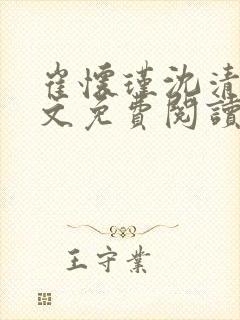 崔懷瑾沈清
文免費閱讀
王守業